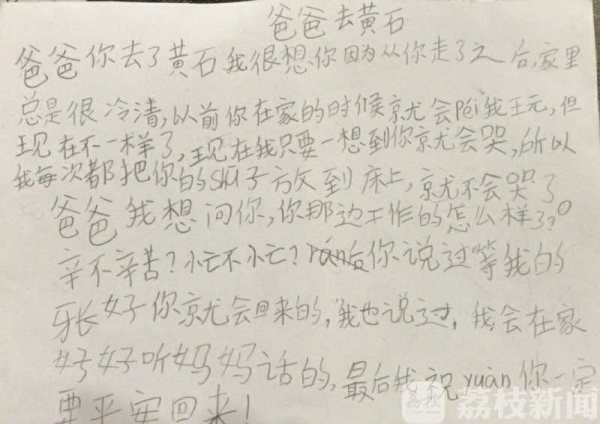 爸爸去黄石
爸爸你去了黄石我很想你因为从你走了之后,家里
总是很冷清,以前你在家的时候就会陪我王元,但
现在不一样了,现在我只要一想到你就会哭,所以
我每次都把你的 子放到床上,就不会哭了
爸爸我想问你,你那边工作的怎么样了?
辛不辛苦?忙不忙?rán后你说过等我的
牙长好你就会回来的,我也说过,我会在家
好好听妈妈话的,最后我祝yuàn你一定
要平安回来!
荔枝新闻